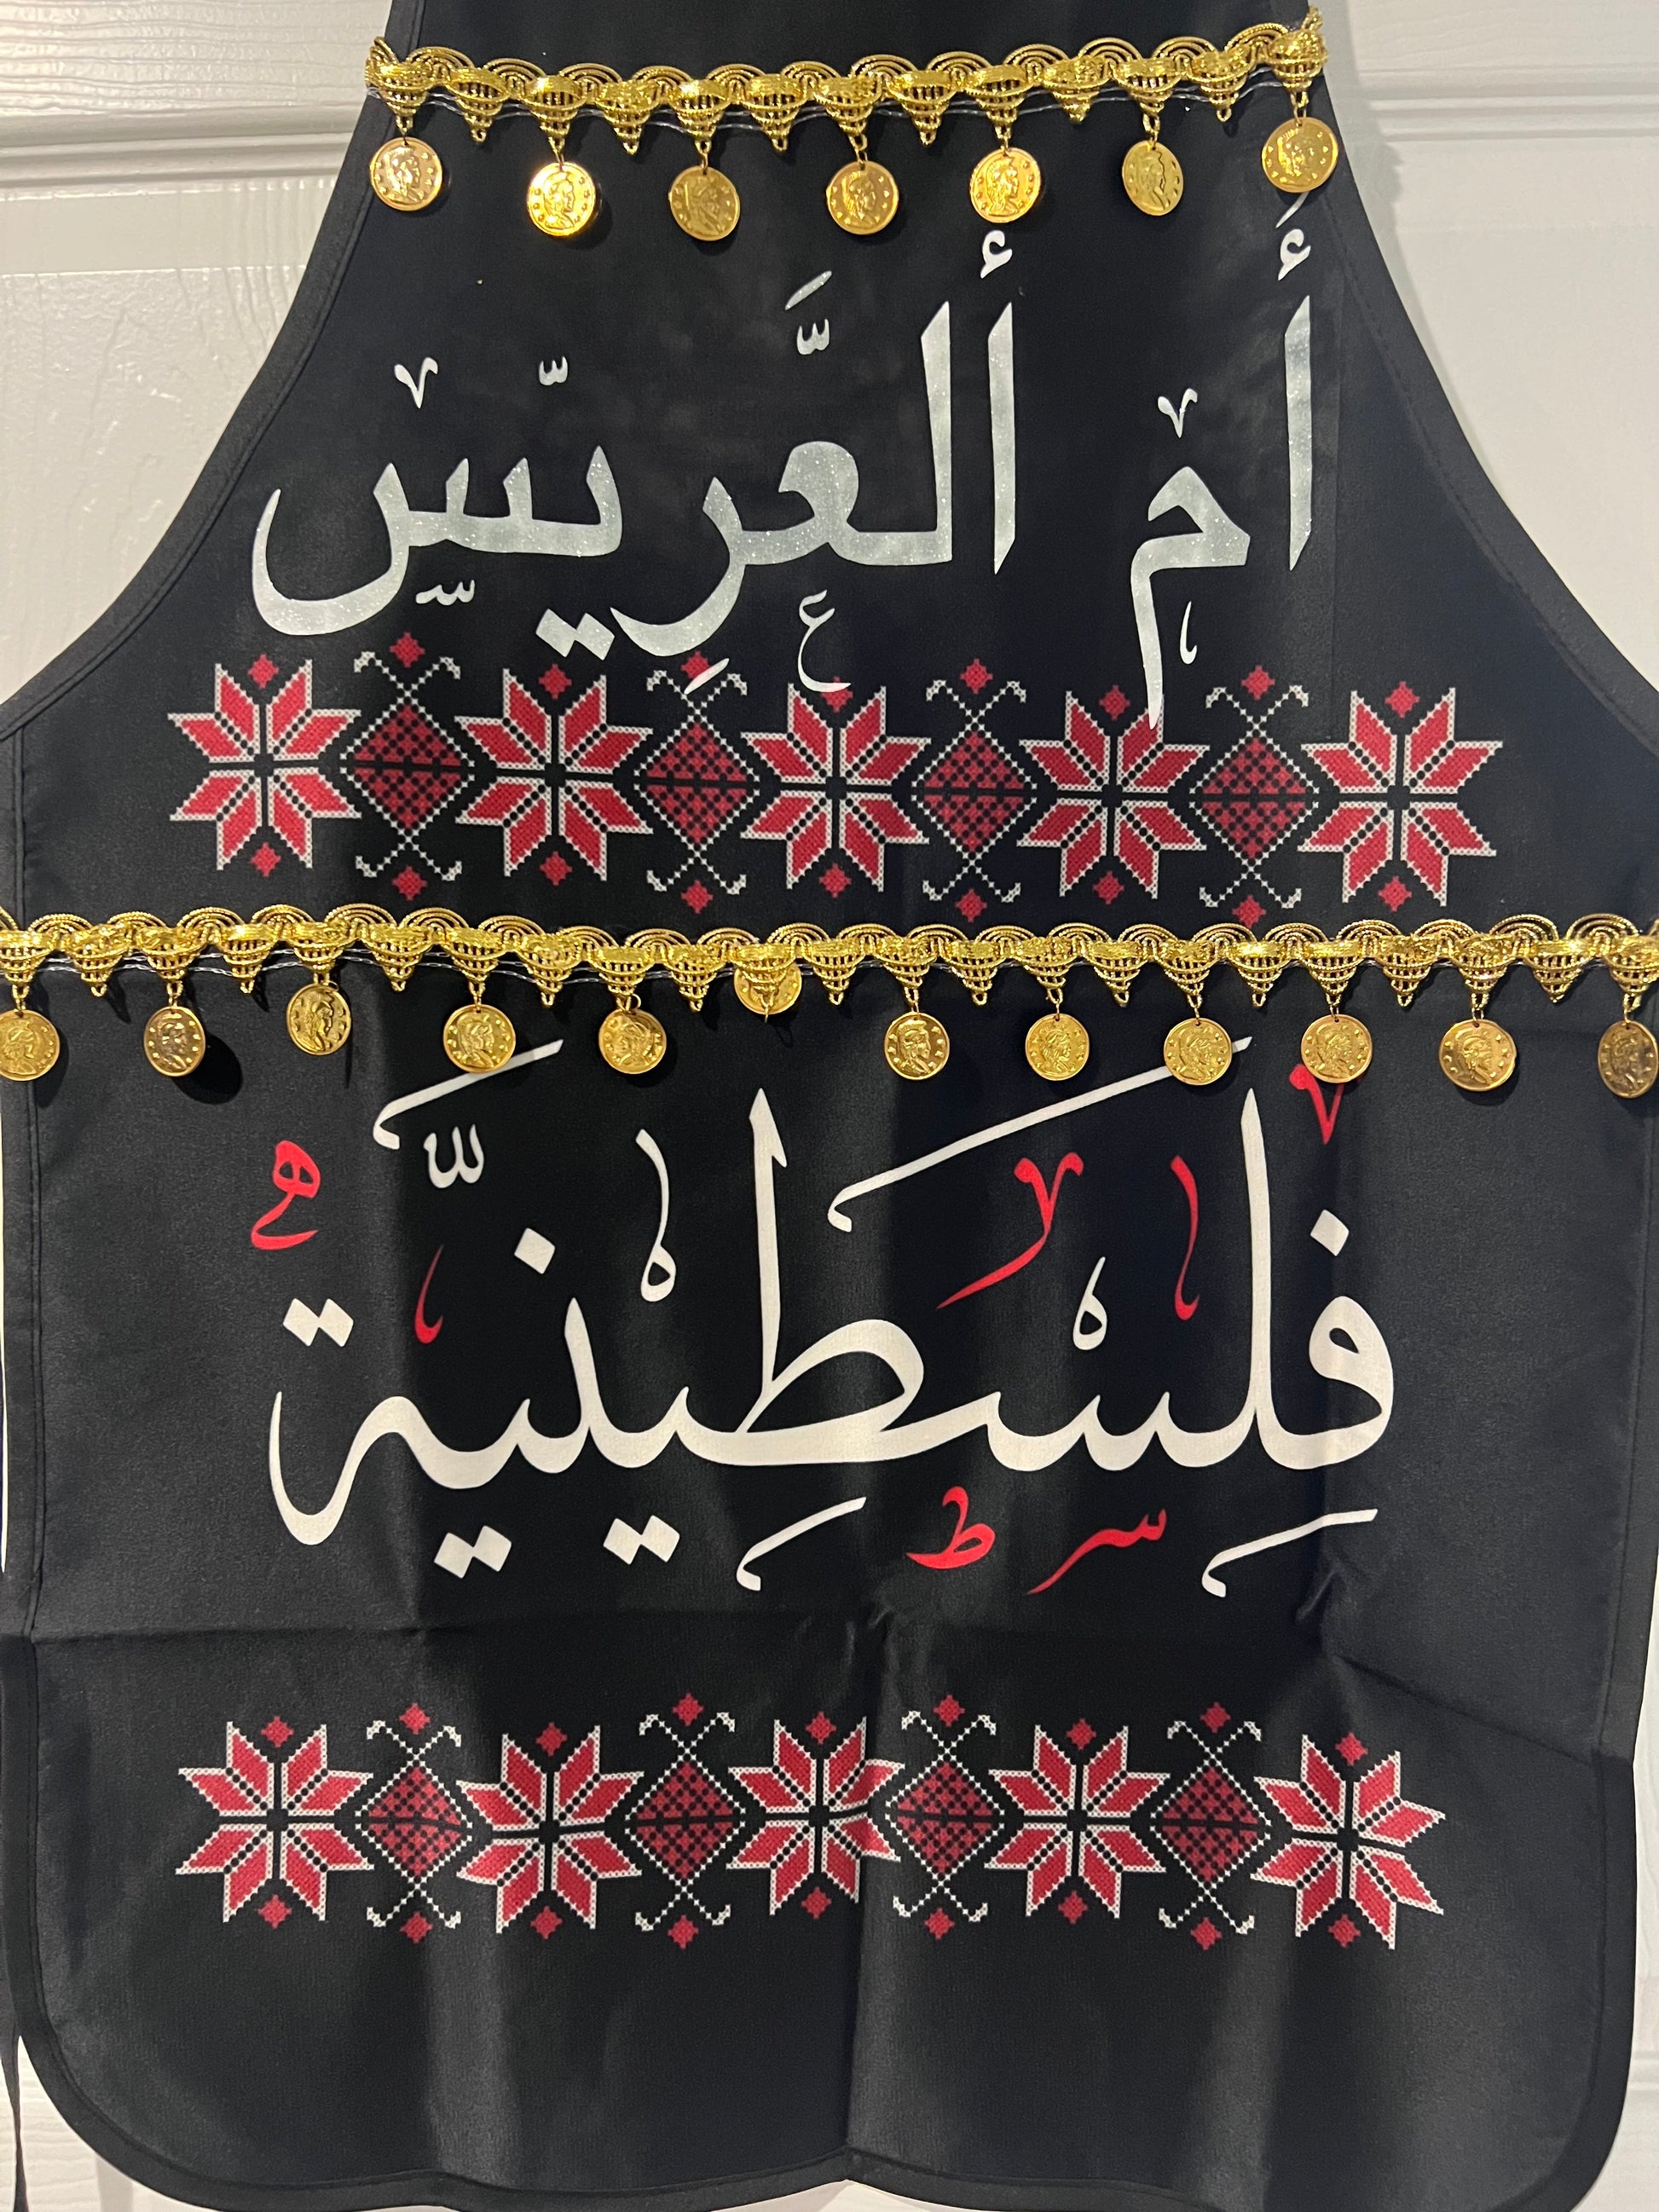 أم ألعَّريّس
فِلسطِينيَّة